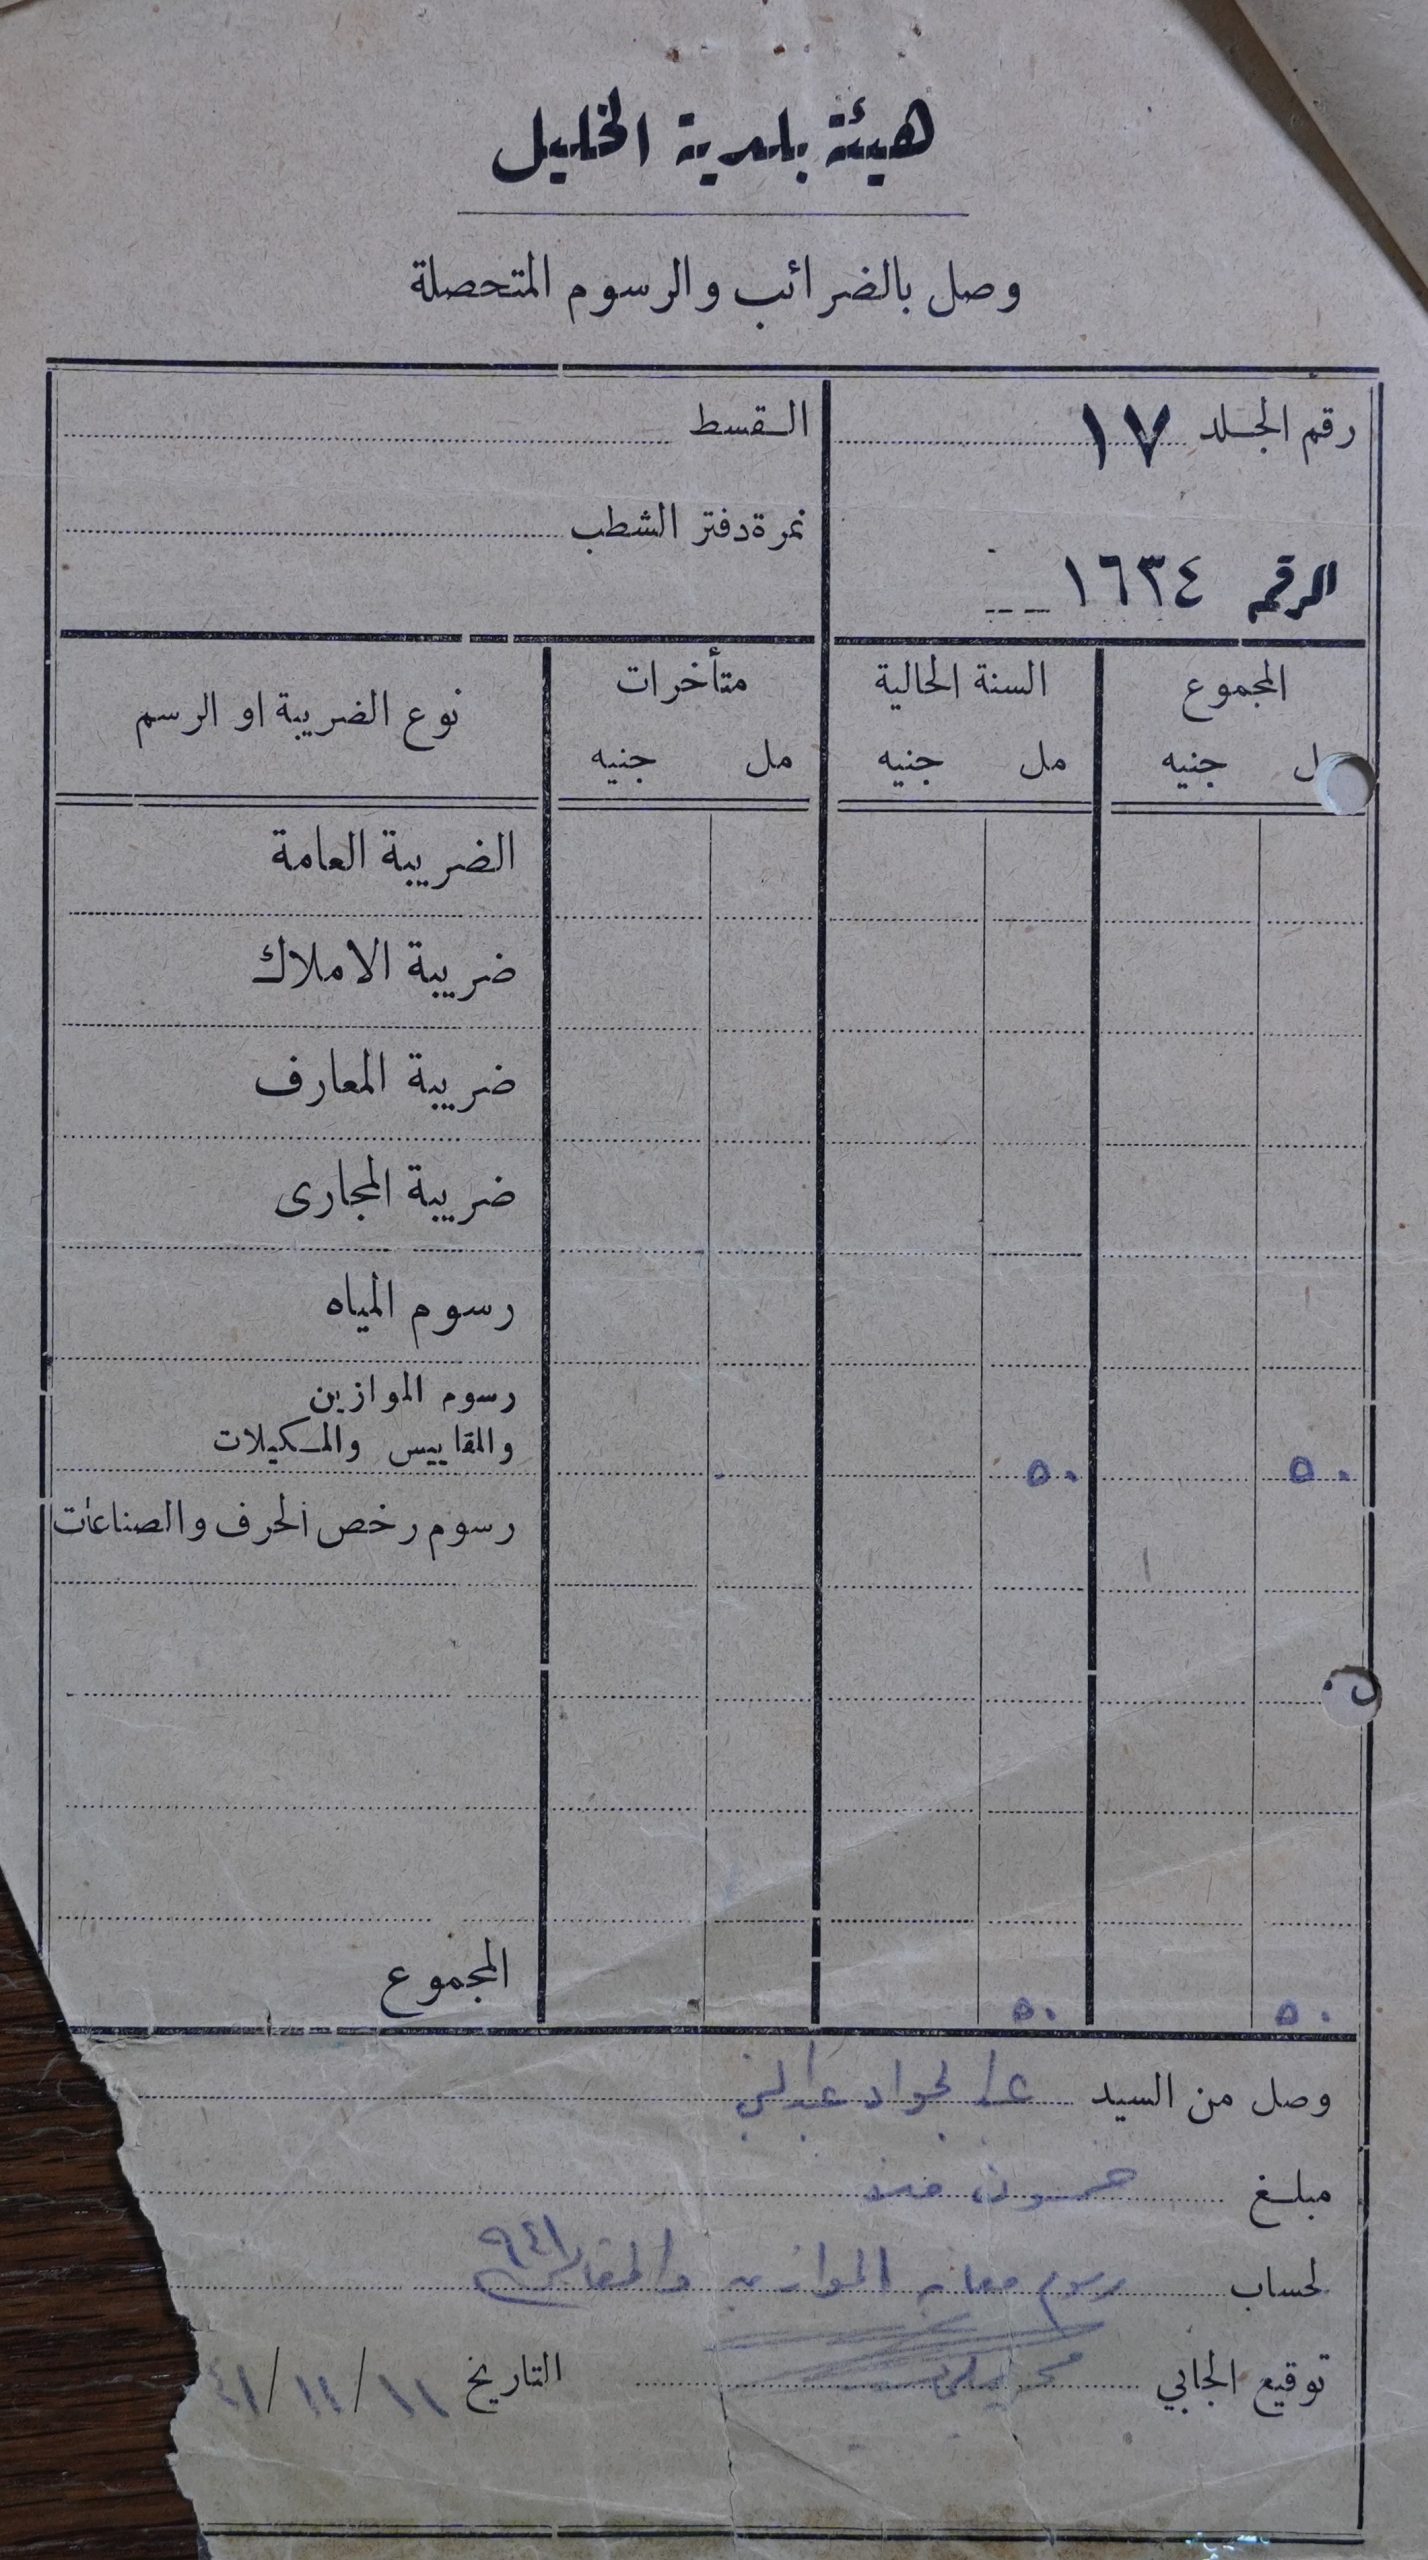 هيئة بلدية الخليل
وصل بالضرائب والرسوم المتحصلة
رقم الجلد ١٧
القسط
نمرة دفتر الشطب
الرقم ١٦٣٤
المجموع السنة الحالية متأخرات نوع الضريبة او الرسم
ل جنيه مل جنيه مل جنيه
الضريبة العامة
ضريبة الاملاك
ضريبة المعارف
ضريبة المجارى
رسوم المياه
رسوم الموازين
والمقاييس والمكيلات
٥٠ ٥٠
رسوم رخص الحرف والصناعات
المجموع
٥٠ ٥٠
وصل من السيد الجواد
مبلغ خمسون
لحساب رسوم الموازين والمقاييس ٩٤١
توقيع الجابي التاريخ ١١/١١/٤١